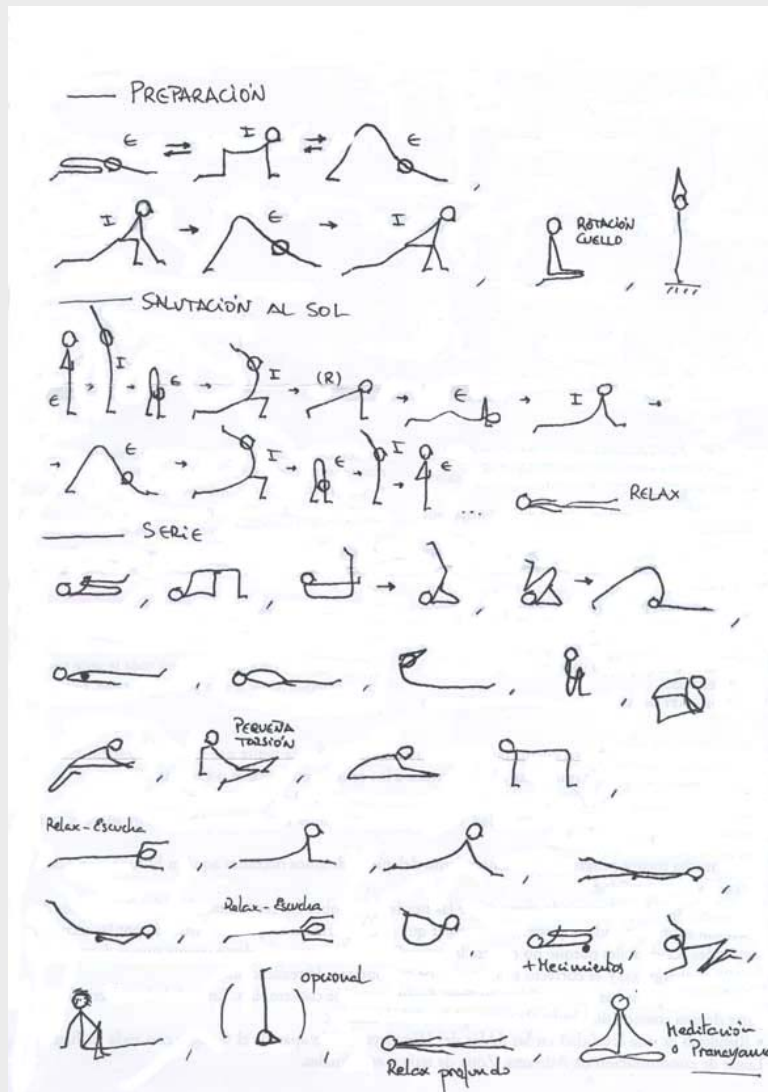 PREPARACIÓN
E I E
I E I ROTACIÓN
CUELLO
SALUTACIÓN AL SOL
E I E I (R) E I
E I E I E
... RELAX
SERIE
PEQUEÑA
TORSIÓN
Relax - Escucha
Relax - Escucha
+ Mecimientos
opcional
Relax profundo
Meditación
o Pranayama